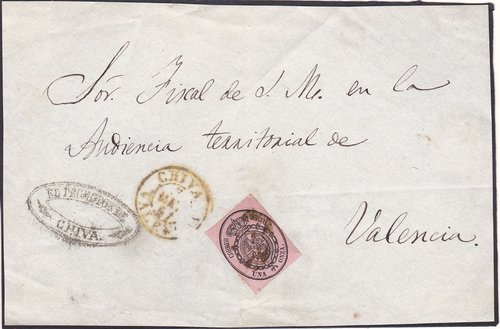 Sõr. Fiscal de S. M. en la
Audiencia territorial de
Valencia.
CHIVA
CHIVA.
UNA ONZA